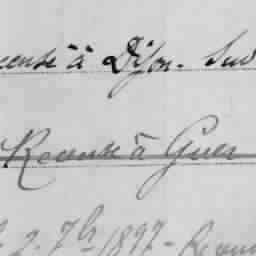 recensé à Dijon. Sud
Recensé à Guer
2. 7b 1897 - Recen